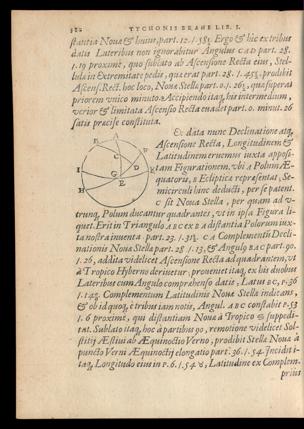 TYCHONIS BRAHE LIB. I.
stantia Nouæ & huius, part. 12. I. 58½. Ergo & hic ex tribus
datis Lateribus non ignorabitur Angulus CAD part. 28.
I. 19 proximè, quo sublato ab Ascensione Recta eius, Stel-
lula in Extremitate pedis, quæ erat part. 28. I. 45½, prodibit
Ascens. Rect. hoc loco, Nouæ Stella part. 0. I. 26½, quæ superat
priorem vnico minuto. Accipiendo itaq; his intermedium,
verior & limitata Ascensio Recta euadet part. 0. minut. 26
satis præcise constituta.
Ex data nunc Declinatione atq;
Ascensione Recta, Longitudinem &
Latitudinem eruemus iuxta apposi-
tam Figurationem, vbi A Polum Æ-
quatoris, B Eclipticæ repræsentat, Se-
micirculi hinc deducti, per se patent.
C sit Nova Stella, per quam ad v-
trunq; Polum ducantur quadrantes, vt in ipsa Figura li-
quet. Erit in Triangulo ABC ex AB distantia Polorum iux-
ta nostra inventa part. 23. I. 31½. CA Complemento Decli-
nationis Novæ Stella part. 28. I. 13, & Angulo BAC part. 90.
I. 26, addita videlicet Ascensione Recta ad quadrantem, vt
à Tropico Hyberno deriuetur, proueniet itaq; ex his duobus
Lateribus cum Angulo comprehenso datis, Latus BC, P. 36
I. itaq; Complementum Latitudinis Novæ Stella indicans,
& ob id quoq; è tribus iam notis, Angul. ABC constabit P. 53
I. 6 proximè, qui distantiam Nouæ à Tropico suppedi-
tat. Sublato itaq; hoc à partibus 90, remotione videlicet Sol-
stitij Æstiui ab Æquinoctio Verno, prodibit Stella Nouæ à
puncto Verni Æquinoctij elongatio part. 36. I. 54. Incidit i-
taq; Longitudo eius in P. 6. I. 54 ♉, Latitudine ex Complem-
prius
A
B
C
D
E
I
G
H